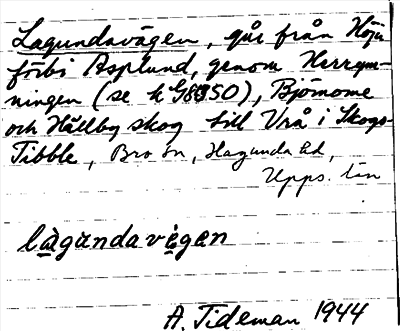 Lagundavägen, går från Höju
förbi Asplund, genom Herrym-
ningen (se k G8850), Björnome
och Hällby skog till Vrå i Skogs-
Tibble, Bro sn, Hagunda hd,
Upps. län
làgundavègen
A. Tideman 1944